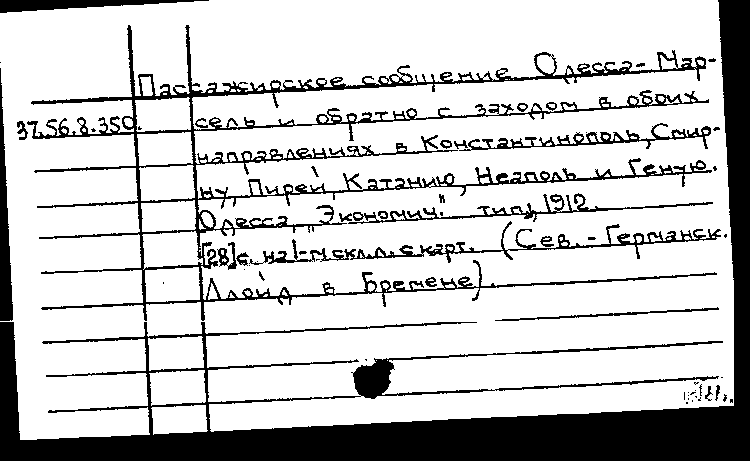 Пассажирское сообщение Одесса- Мар-
37.56.8.350. сель и обратно с заходом в обоих
направлениях в Константинополь, Смир-
ну, Пирей, Катанию, Неаполь и Геную.
Одесса, "Экономич." тип., 1912.
[28]с. на 1-м скл.л. с карт. (Сев. - Германск.
Ллойд в Бремене).